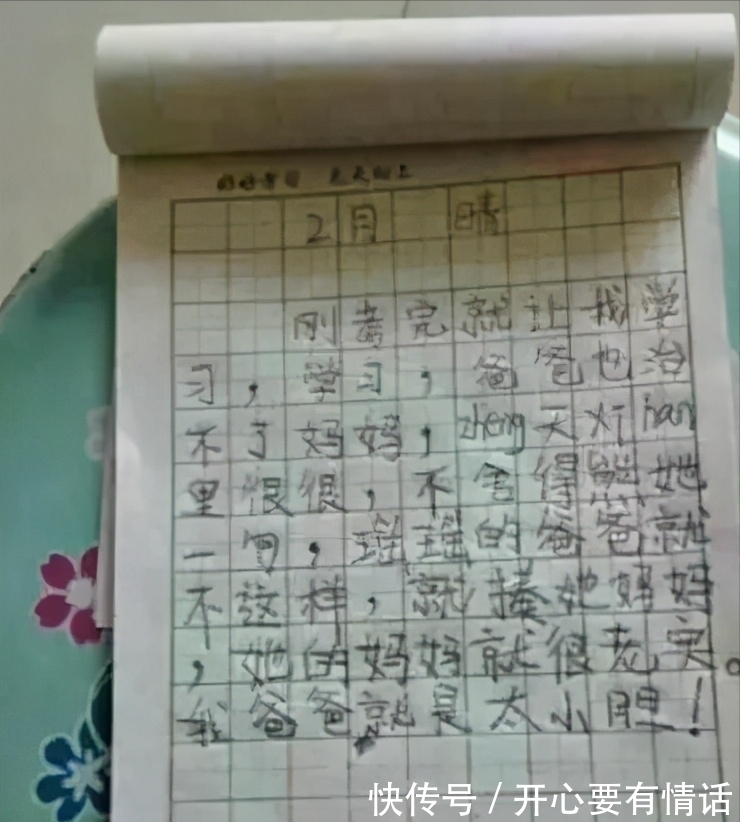 好好学习 天天向上
2月 晴
刚考完就让我学
习，学习，爸爸也治
不了妈妈，zheng天
里很很，不舍得熊她
一句，瑶瑶的爸爸就
不这样，就揍她妈妈
，她的妈妈就很老实。
我爸爸就是太小胆！
快传号 / 开心要有情话